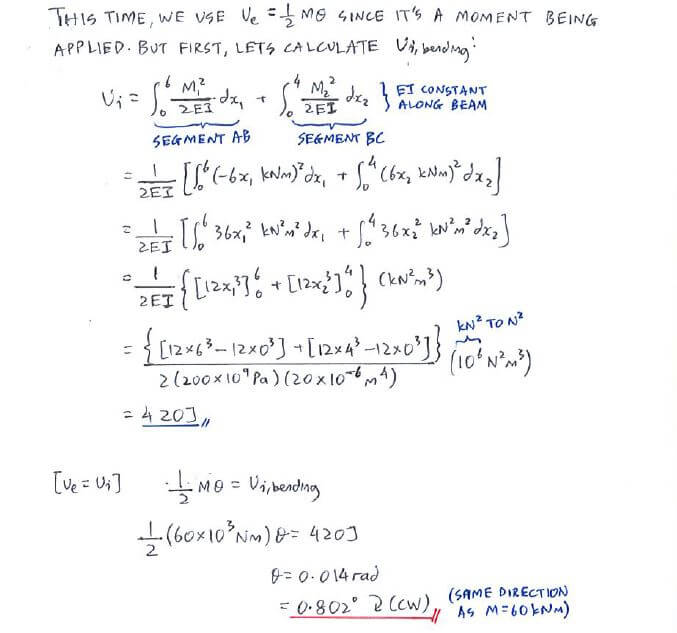 THIS TIME, WE USE Ue = 1/2 Mθ SINCE IT'S A MOMENT BEING
APPLIED. BUT FIRST, LETS CALCULATE Ui,bending:
Ui = ∫₀⁶ M₁²/2EI dx₁ + ∫₀⁴ M₂²/2EI dx₂ } EI CONSTANT ALONG BEAM
SEGMENT AB SEGMENT BC
= 1/2EI [∫₀⁶ (-6x₁ kNm)² dx₁ + ∫₀⁴ (6x₂ kNm)² dx₂]
= 1/2EI [∫₀⁶ 36x₁² kN²m² dx₁ + ∫₀⁴ 36x₂² kN²m² dx₂]
= 1/2EI {[12x₁³]₀⁶ + [12x₂³]₀⁴} (kN²m³)
kN² TO N²
= {[12×6³ - 12×0³] + [12×4³ - 12×0³]} / 2(200×10⁹ Pa)(20×10⁻⁶ m⁴) (10⁶ N²m³)
= 420J
[Ue = Ui] 1/2 Mθ = Ui,bending
1/2 (60×10³ Nm) θ = 420J
θ = 0.014 rad
= 0.802° (CW) (SAME DIRECTION AS M=60kNm)